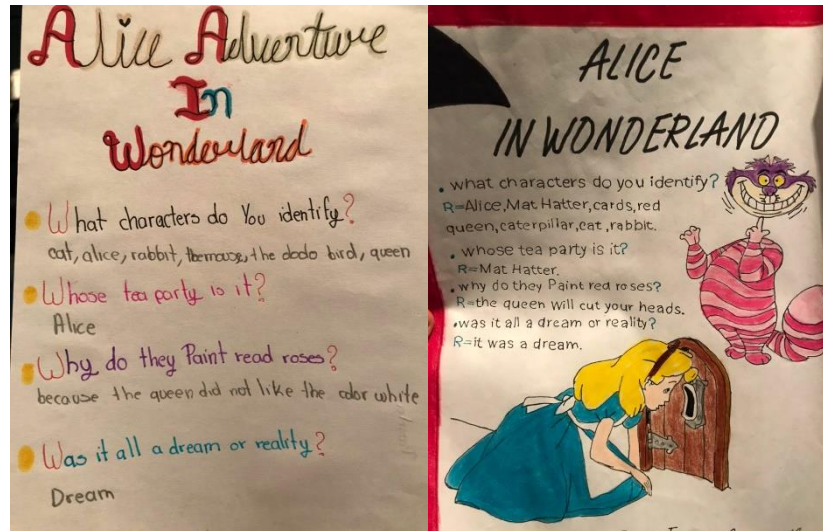 Alice Adventure
In
Wonderland
What characters do You identify?
cat, alice, rabbit, themouse, the dodo bird, queen
Whose tea party is it?
Alice
Why do they Paint read roses?
because the queen did not like the color white
Was it all a dream or reality?
Dream
ALICE
IN WONDERLAND
. what characters do you identify?
R=Alice,Mat Hatter,cards,red
queen,caterpillar,cat,rabbit.
. whose tea party is it?
R=Mat Hatter.
.why do they Paint red roses?
R=the queen will cut your heads.
.was it all a dream or reality?
R=it was a dream.